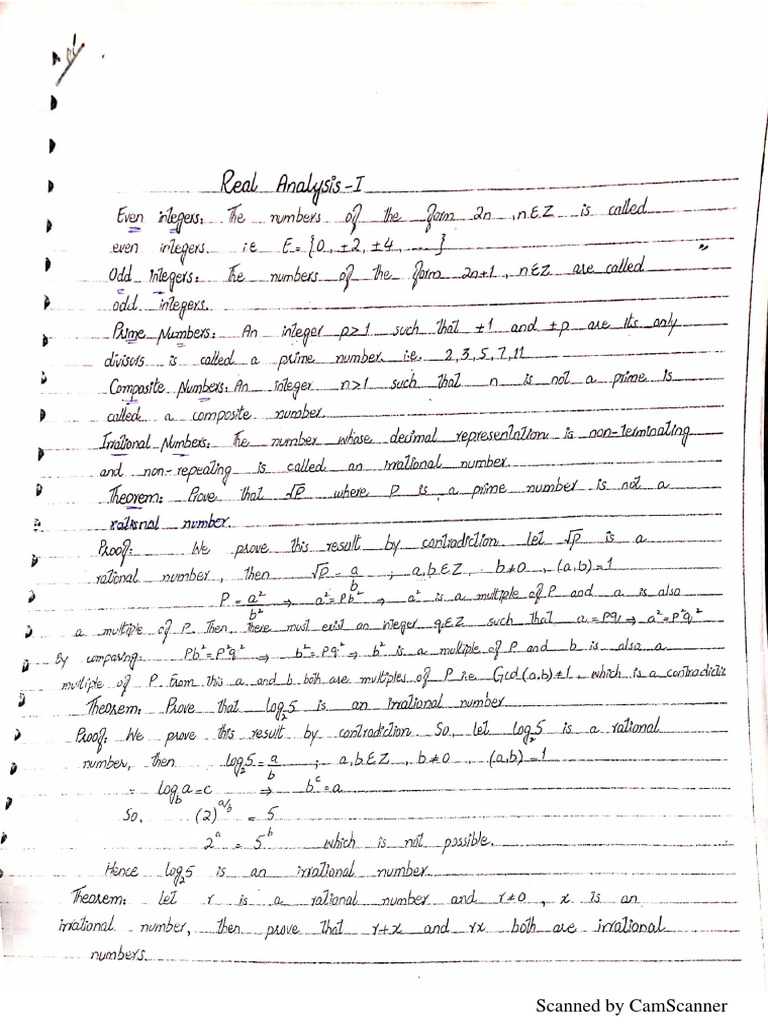 Real Analysis-I
Even integers: The numbers of the form 2n, n∈Z is called
even integers. i.e E = {0, ±2, ±4, ....}
Odd Integers: The numbers of the form 2n+1, n∈Z are called
odd integers.
Prime Numbers: An integer p>1 such that ±1 and ±p are its only
divisors is called a prime number. i.e. 2,3,5,7,11
Composite Numbers: An integer n>1 such that n is not a prime is
called a composite number.
Irrational Numbers: The number whose decimal representation is non-terminating
and non-repeating is called an irrational number.
Theorem: Prove that √P where P is a prime number is not a
rational number.
Proof: We prove this result by contradiction. Let √p is a
rational number, then √p = a/b ; a,b∈Z , b≠0 , (a,b)=1
P = a²/b² → a² = Pb² → a² is a multiple of P and a is also
a multiple of P. Then there must exist an integer q∈Z such that a=Pq → a²=P²q²
By comparing: Pb²=P²q² → b²=Pq² → b² is a multiple of P and b is also a
multiple of P. From this a and b both are multiples of P i.e Gcd(a,b)≠1, which is a contradictic
Theorem: Prove that log₂5 is an irrational number
Proof: We prove this result by contradiction. So, let log₂5 is a rational
number, then log₂5 = a/b ; a,b∈Z , b≠0 , (a,b)=1
∵ log_b a = c ⇒ b^c = a
So, (2)^(a/b) = 5
2^a = 5^b which is not possible.
Hence log₂5 is an irrational number.
Theorem: Let r is a rational number and r≠0, x is an
irrational number, then prove that r+x and rx both are irrational
numbers.
Scanned by CamScanner